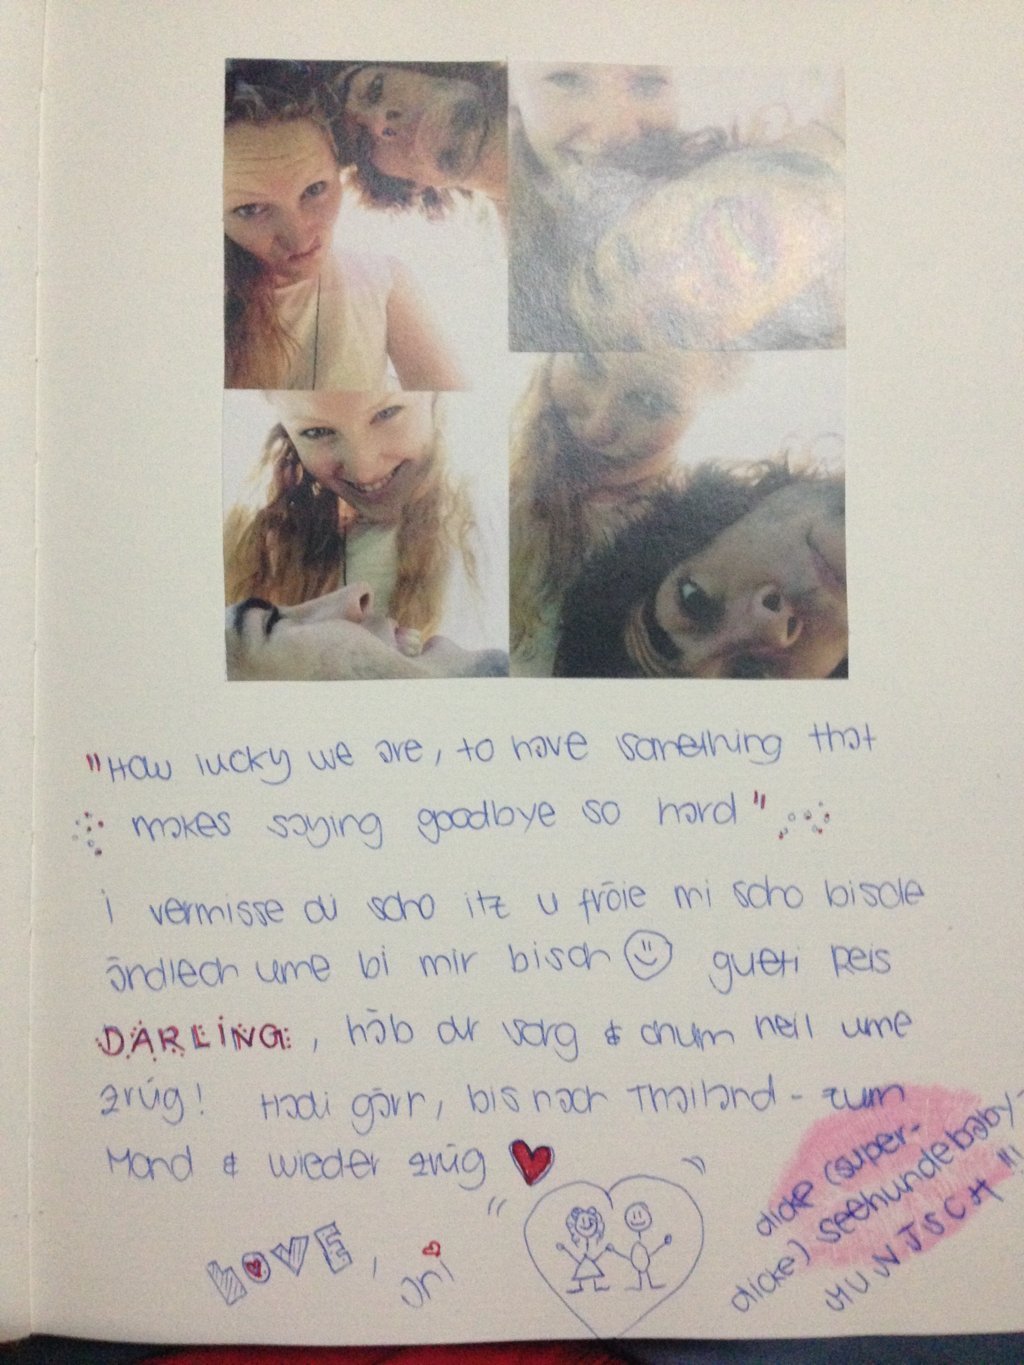 "How lucky we are, to have something that
makes saying goodbye so hard"
i vermisse di scho itz u fröie mi scho bisole
ändlech ume bi mir bisch gueti Reis
DARLING, häb dr sorg & chum heil ume
zrüg! Hadi gärn, bis nach Thailand - zum
Mond & wieder zrüg
LOVE, Ari
dicke (super-
dicke) seehundebaby-
MUNTSCH "!